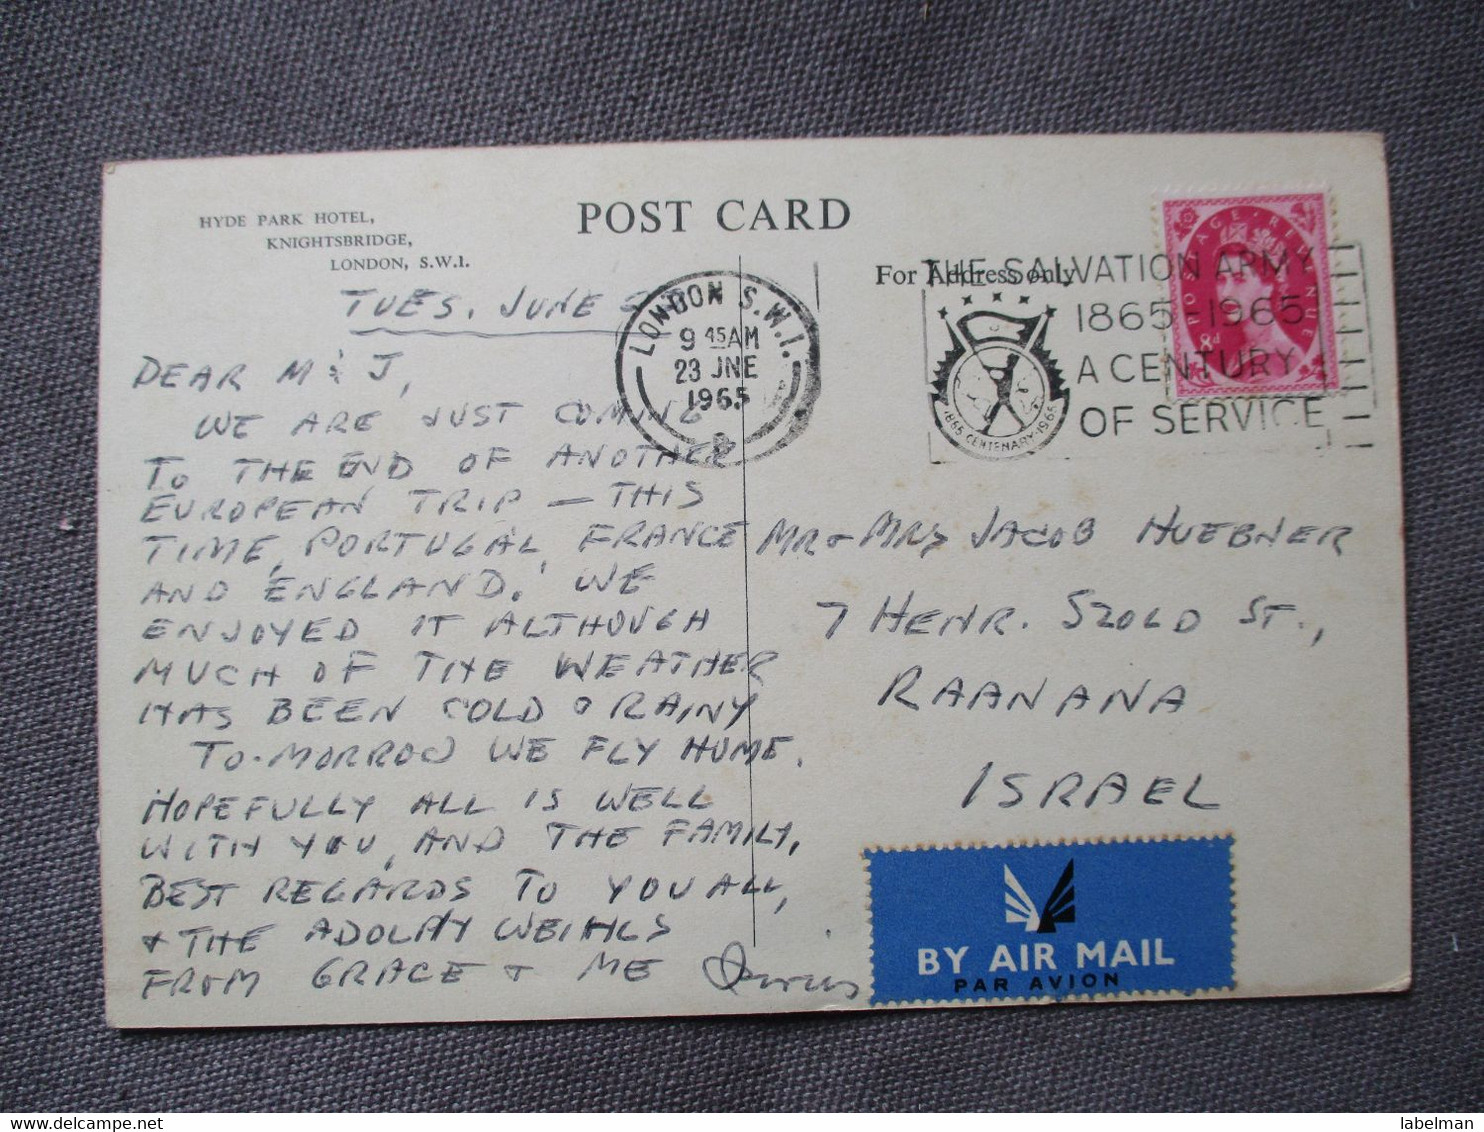 HYDE PARK HOTEL,
KNIGHTSBRIDGE,
LONDON, S.W.1.
POST CARD
For Address only
TUES, JUNE
LONDON S.W.1.
9 45AM
23 JNE
1965
THE SALVATION ARMY
1865-1965
A CENTURY
OF SERVICE
1865 CENTENARY 1965
POSTAGE REVENUE
8d
DEAR M & J,
WE ARE JUST COMING
TO THE END OF ANOTHER
EUROPEAN TRIP — THIS
TIME, PORTUGAL, FRANCE
AND ENGLAND. WE
ENJOYED IT ALTHOUGH
MUCH OF THE WEATHER
HAS BEEN COLD & RAINY
TO-MORROW WE FLY HOME.
HOPEFULLY ALL IS WELL
WITH YOU, AND THE FAMILY,
BEST REGARDS TO YOU ALL,
+ THE ADOLPH WEIHLS
FROM GRACE + ME
MR + MRS JACOB HUEBNER
7 HENR. SZOLD ST.,
RAANANA
ISRAEL
BY AIR MAIL
PAR AVION
delcampe.net
labelman